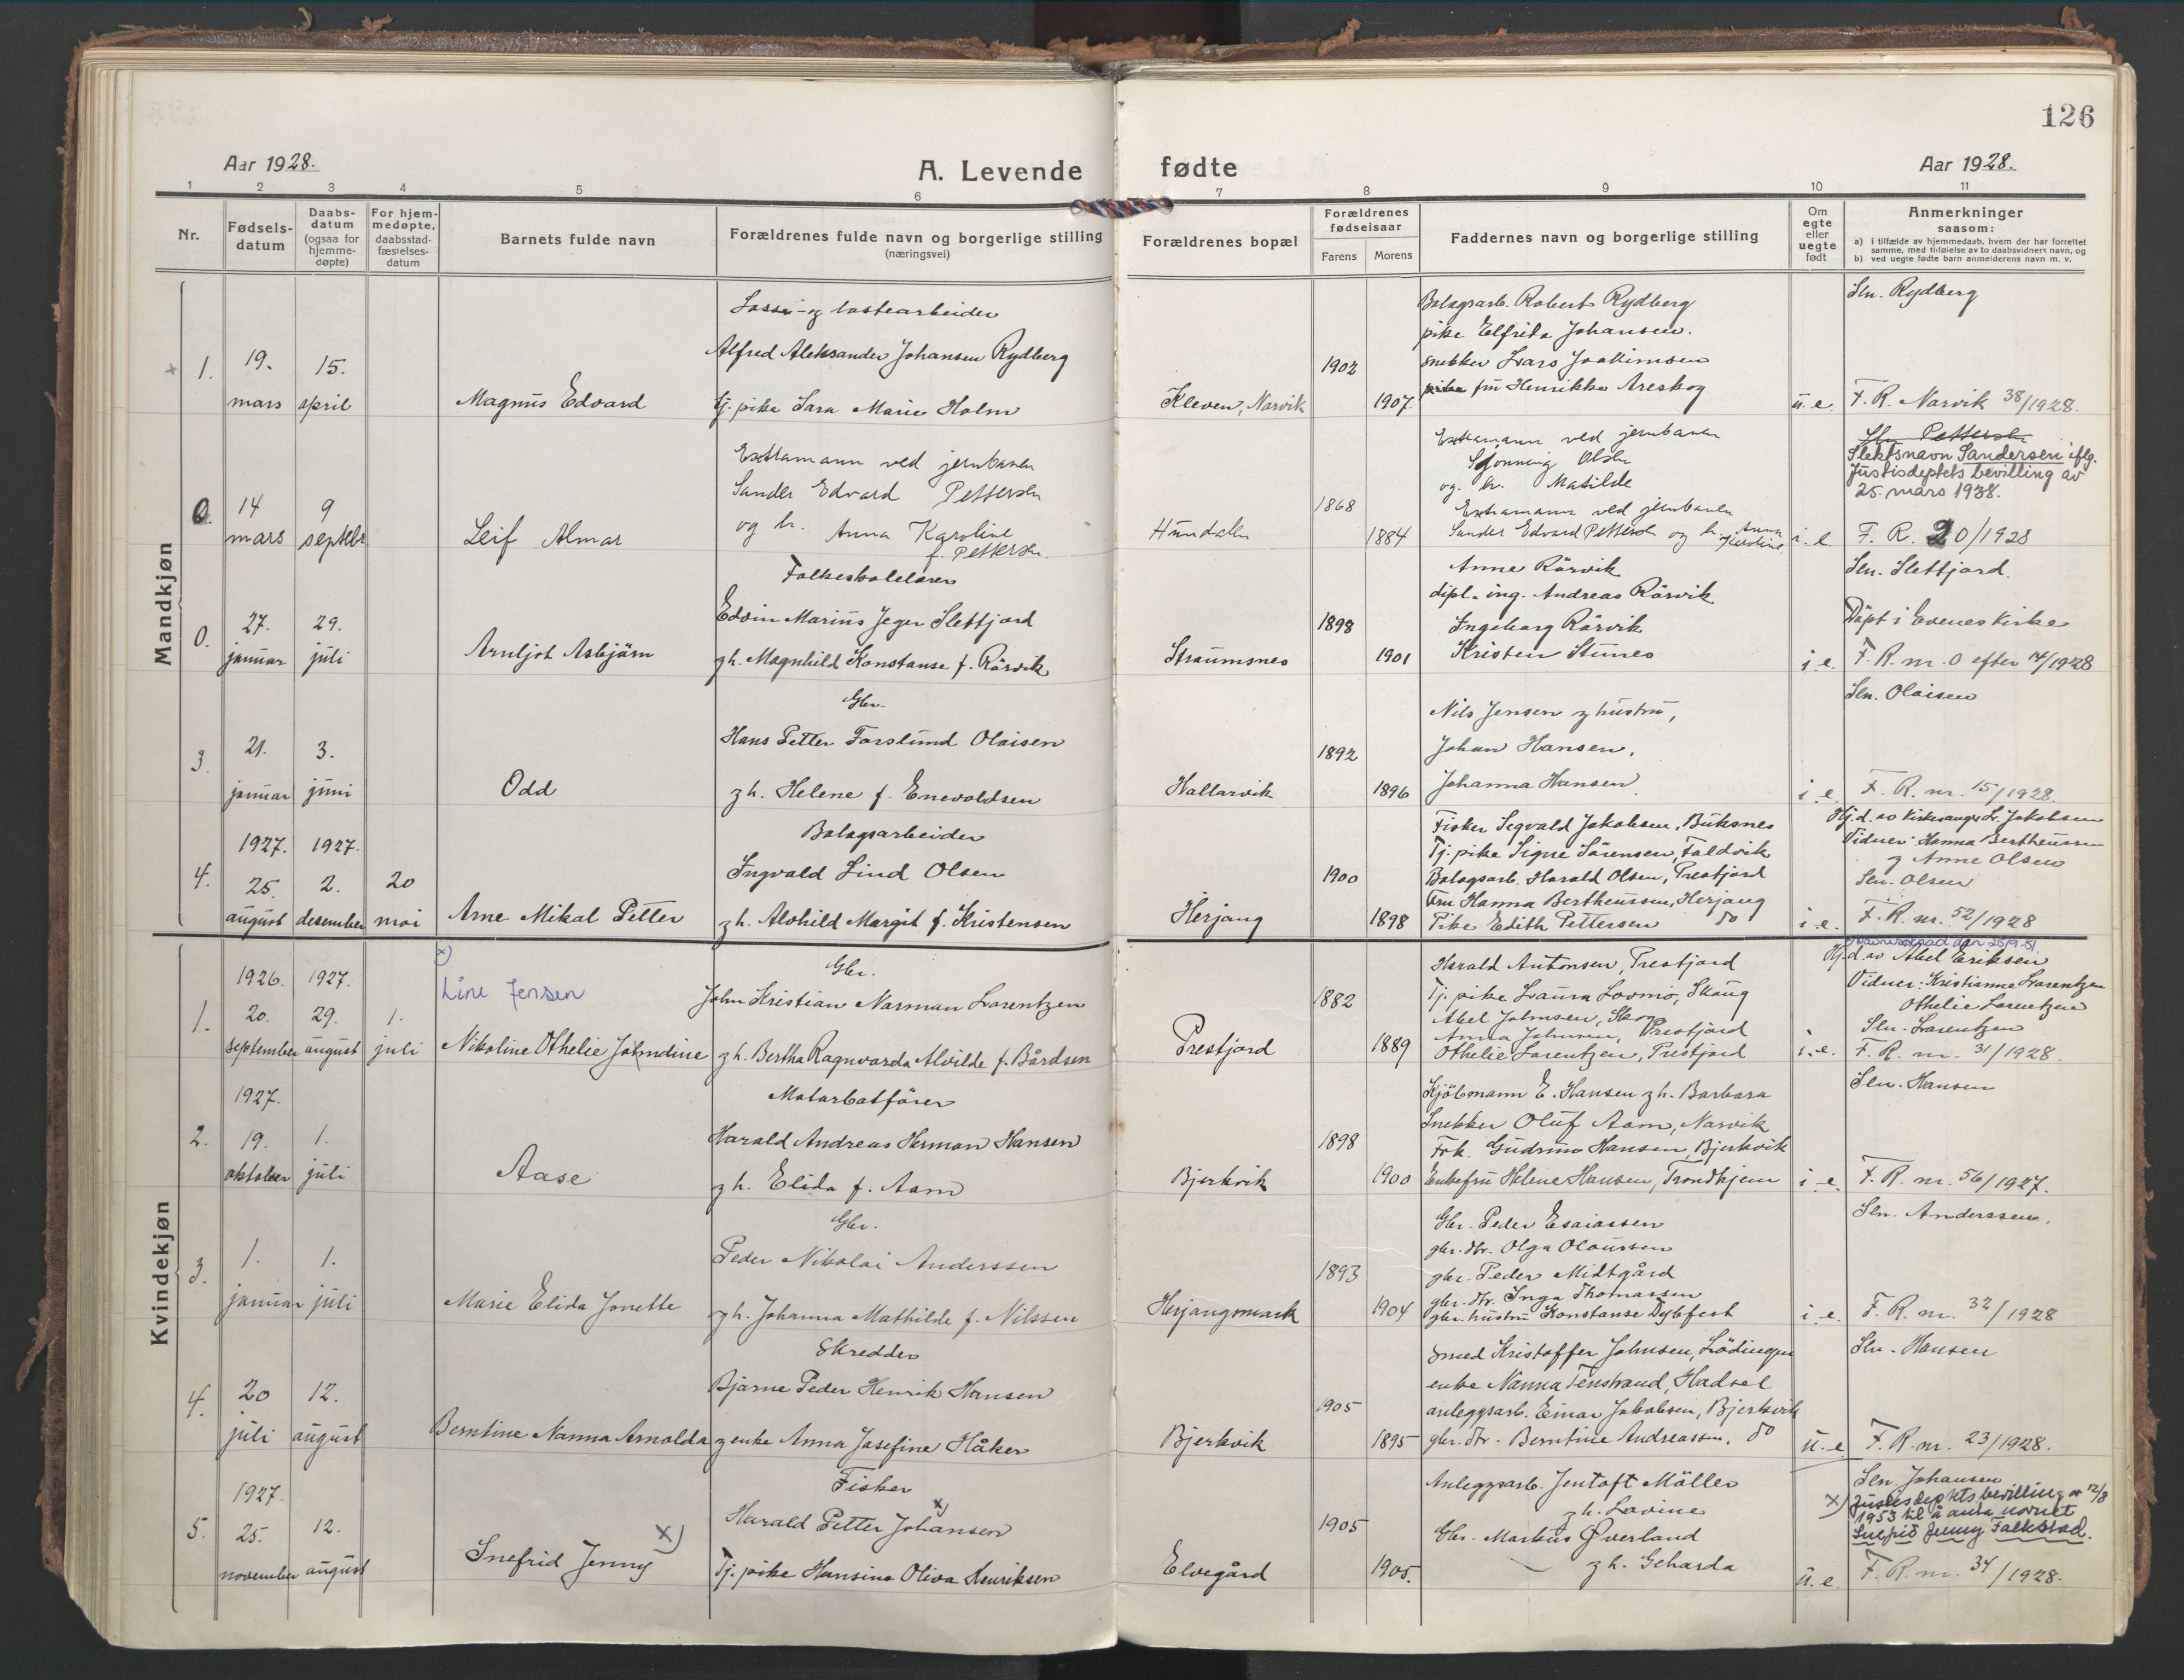 126
Aar 1928.
A. Levende fødte
Aar 1928.
1 2 3 4 5 6 7 8 9 10 11
Nr.
Fødsels-datum
Daabs-datum (ogsaa for hjemme-døpte)
For hjem-medøpte, daabsstad-fæstelses-datum
Barnets fulde navn
Forældrenes fulde navn og borgerlige stilling (næringsvei)
Forældrenes bopæl
Forældrenes fødselsaar
Farens Morens
Faddernes navn og borgerlige stilling
Om egte eller uegte født
Anmerkninger saasom:
a) i tilfælde av hjemmedaab, hvem der har forrettet samme, med tilføielse av to daabsvidners navn, og
b) ved uegte fødte barn anmelderens navn m. v.
Mandkjøn
1. 19. mars 15. april
Magnus Edvard
Losse- og lastearbeider
Alfred Aleksander Johansen Rydberg
tj. pike Sara Marie Holm
Kleven, Narvik
1902 1907.
Bolagsarb. Robert Rydberg
pike Elfrida Johansen.
snekker Lars Joakimsen
fru Henrikke Areskog
u. e.
Sln. Rydberg
F. R. Narvik 38/1928.
0. 14 mars 9 septebr
Leif Almar
Extramann ved jernbanen
Sander Edvard Pettersen
og h. Anna Karoline
f. Pettersen
Hundalen
1868 1884
Extramann ved jernbanen
Olsen
og h. Matilde
Extramann ved jernbanen
Sander Edvard Pettersen og h. Anna Karoline
i. e.
Sln Pettersen
Slektsnavn Sandersen iflg.
Justisdeptets bevilling av
25. mars 1938.
F. R. 20/1928
0. 27. januar 29. juli
Arnljot Asbjörn
Folkeskolelærer
Edvin Marius Jeger Slettjord
g h. Magnhild Konstanse f. Rörvik
Straumsnes
1898 1901
Anne Rörvik
dipl. ing. Andreas Rörvik
Ingeborg Rörvik
Kristen Stunes
i. e.
Sln. Slettjord.
Döpt i Evenes kirke
F. R. nr. 0 efter 14/1928
3. 21. januar 3. juni
Odd
Gbr.
Hans Petter Forslund Olaisen
g h. Helene f. Enevoldsen
Hallarvik
1892 1896
Nils Jensen g hustru,
Johan Hansen,
Johanna Hansen
i. e.
Sln. Olaisen
F. R. nr. 15/1928.
4. 1927. 25 august 1927. 2. desember 20 mai
Arne Mikal Petter
Bolagsarbeider
Ingvald Lind Olsen
g h. Alvhild Margit f. Kristensen
Herjang
1900 1898
Fisker Segvald Jakobsen, Buksnes
Tj. pike Signe Sörensen, Foldvik
Bolagsarb. Harald Olsen, Trestjord
Fru Hanna Bertheussen, Herjang
Pike Edith Pettersen do
i. e.
Hj. d. av Kirkesanger L. Jakobsen
Vidner: Hanna Bertheussen
g Anne Olsen
Sln. Olsen
F. R. nr. 52/1928
Kvindekjøn
1. 1926. 20. september 1927. 29. august 1. juli
x) Line Jensen
Nikoline Othelie Johndine
Gbr.
John Kristian Norman Lorentzen
g h. Bertha Ragnvarda Alvilde f. Bårdsen
Prestjord
1882 1889
Harald Antonsen, Trestjord
Tj. pike Laura Lovmo, Skaug
Abel Johnsen, Skog
Anna Johnsen, Prestjord
Othelie Lorentzen, Prestjord
i. e.
Hj. d. av Abel Eriksen
Vidner: Kristianne Lorentzen
Othelie Lorentzen
Sln. Lorentzen
F. R. nr. 31/1928.
2. 1927. 19. oktober 1. juli
Aase
Motorbotförer
Harald Andreas Herman Hansen
g h. Elida f. Aam
Bjerkvik
1898 1900
Kjöbmann E. Hansen g h. Barbara
Snekker Oluf Aam, Narvik
Frk. Gudrun Hansen, Bjerkvik
Enkefru Helene Hansen, Trondhjem
i e.
Sln. Hansen
F. R. nr. 56/1927.
3. 1. januar 1. juli
Marie Elida Jonette
Gbr.
Peder Nikolai Anderssen
g h. Johanna Mathilde f. Nilssen
Herjangsmark
1893 1904
Gbr. Peder Esaiassen
gbr. dtr. Olga Olaussen
gbr. Peder Midtgård
gbr. dtr. Inga Thomassen
gbr. hustru Konstanse Dybfest
i. e.
Sln. Anderssen.
F. R. nr. 32/1928
4. 20 juli 12. august
Berntine Nanna Arnolda
Skredder
Bjarne Peder Henrik Hansen
g enke Anna Josefine Håker
Bjerkvik
1905 1895
smed Kristoffer Johnsen, Lödingen
enke Nanna Tenstrand, Hadsel
anleggsarb. Einar Jakobsen, Bjerkvik
gbr. dtr. Berntine Andreassen, do
u. e
Sln. Hansen
F. R. nr. 23/1928.
5. 1927. 25. november 12. august
Snefrid Jenny x)
Fisker
Harald Petter Johansen x)
Tj. pike Hansine Oliva Henriksen
Elvegård
1905 1905.
Anleggsarb. Jentoft Möller
g h. Lovine
Gbr. Markus Øverland
g h. Geharda
u. e.
Sln. Johansen
x) Justisdeptets bevilling av 12/8
1953 til å anta navnet
Snefrid Jenny Falkstad.
F. R. nr. 34/1928.